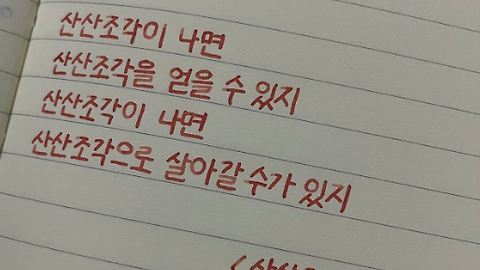 산산조각이 나면
산산조각을 얻을 수 있지
산산조각이 나면
산산조각으로 살아갈 수가 있지